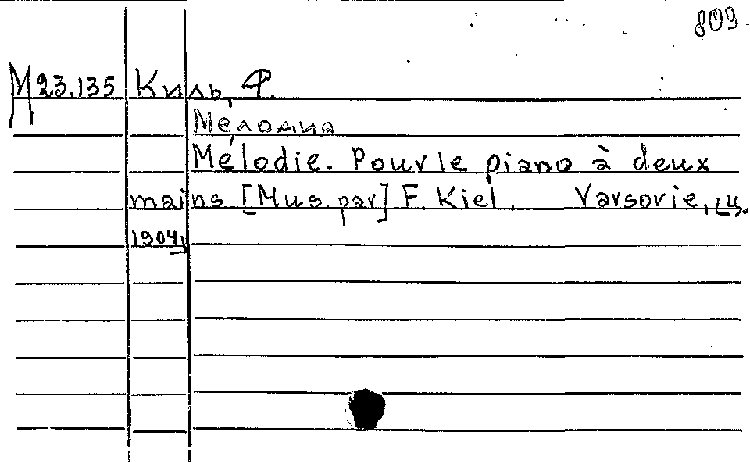 809
M 23.135 Киль, Ф.
Мелодия
Mélodie. Pour le piano à deux
mains [Mus. par] F. Kiel. Varsovie, ц.
1904